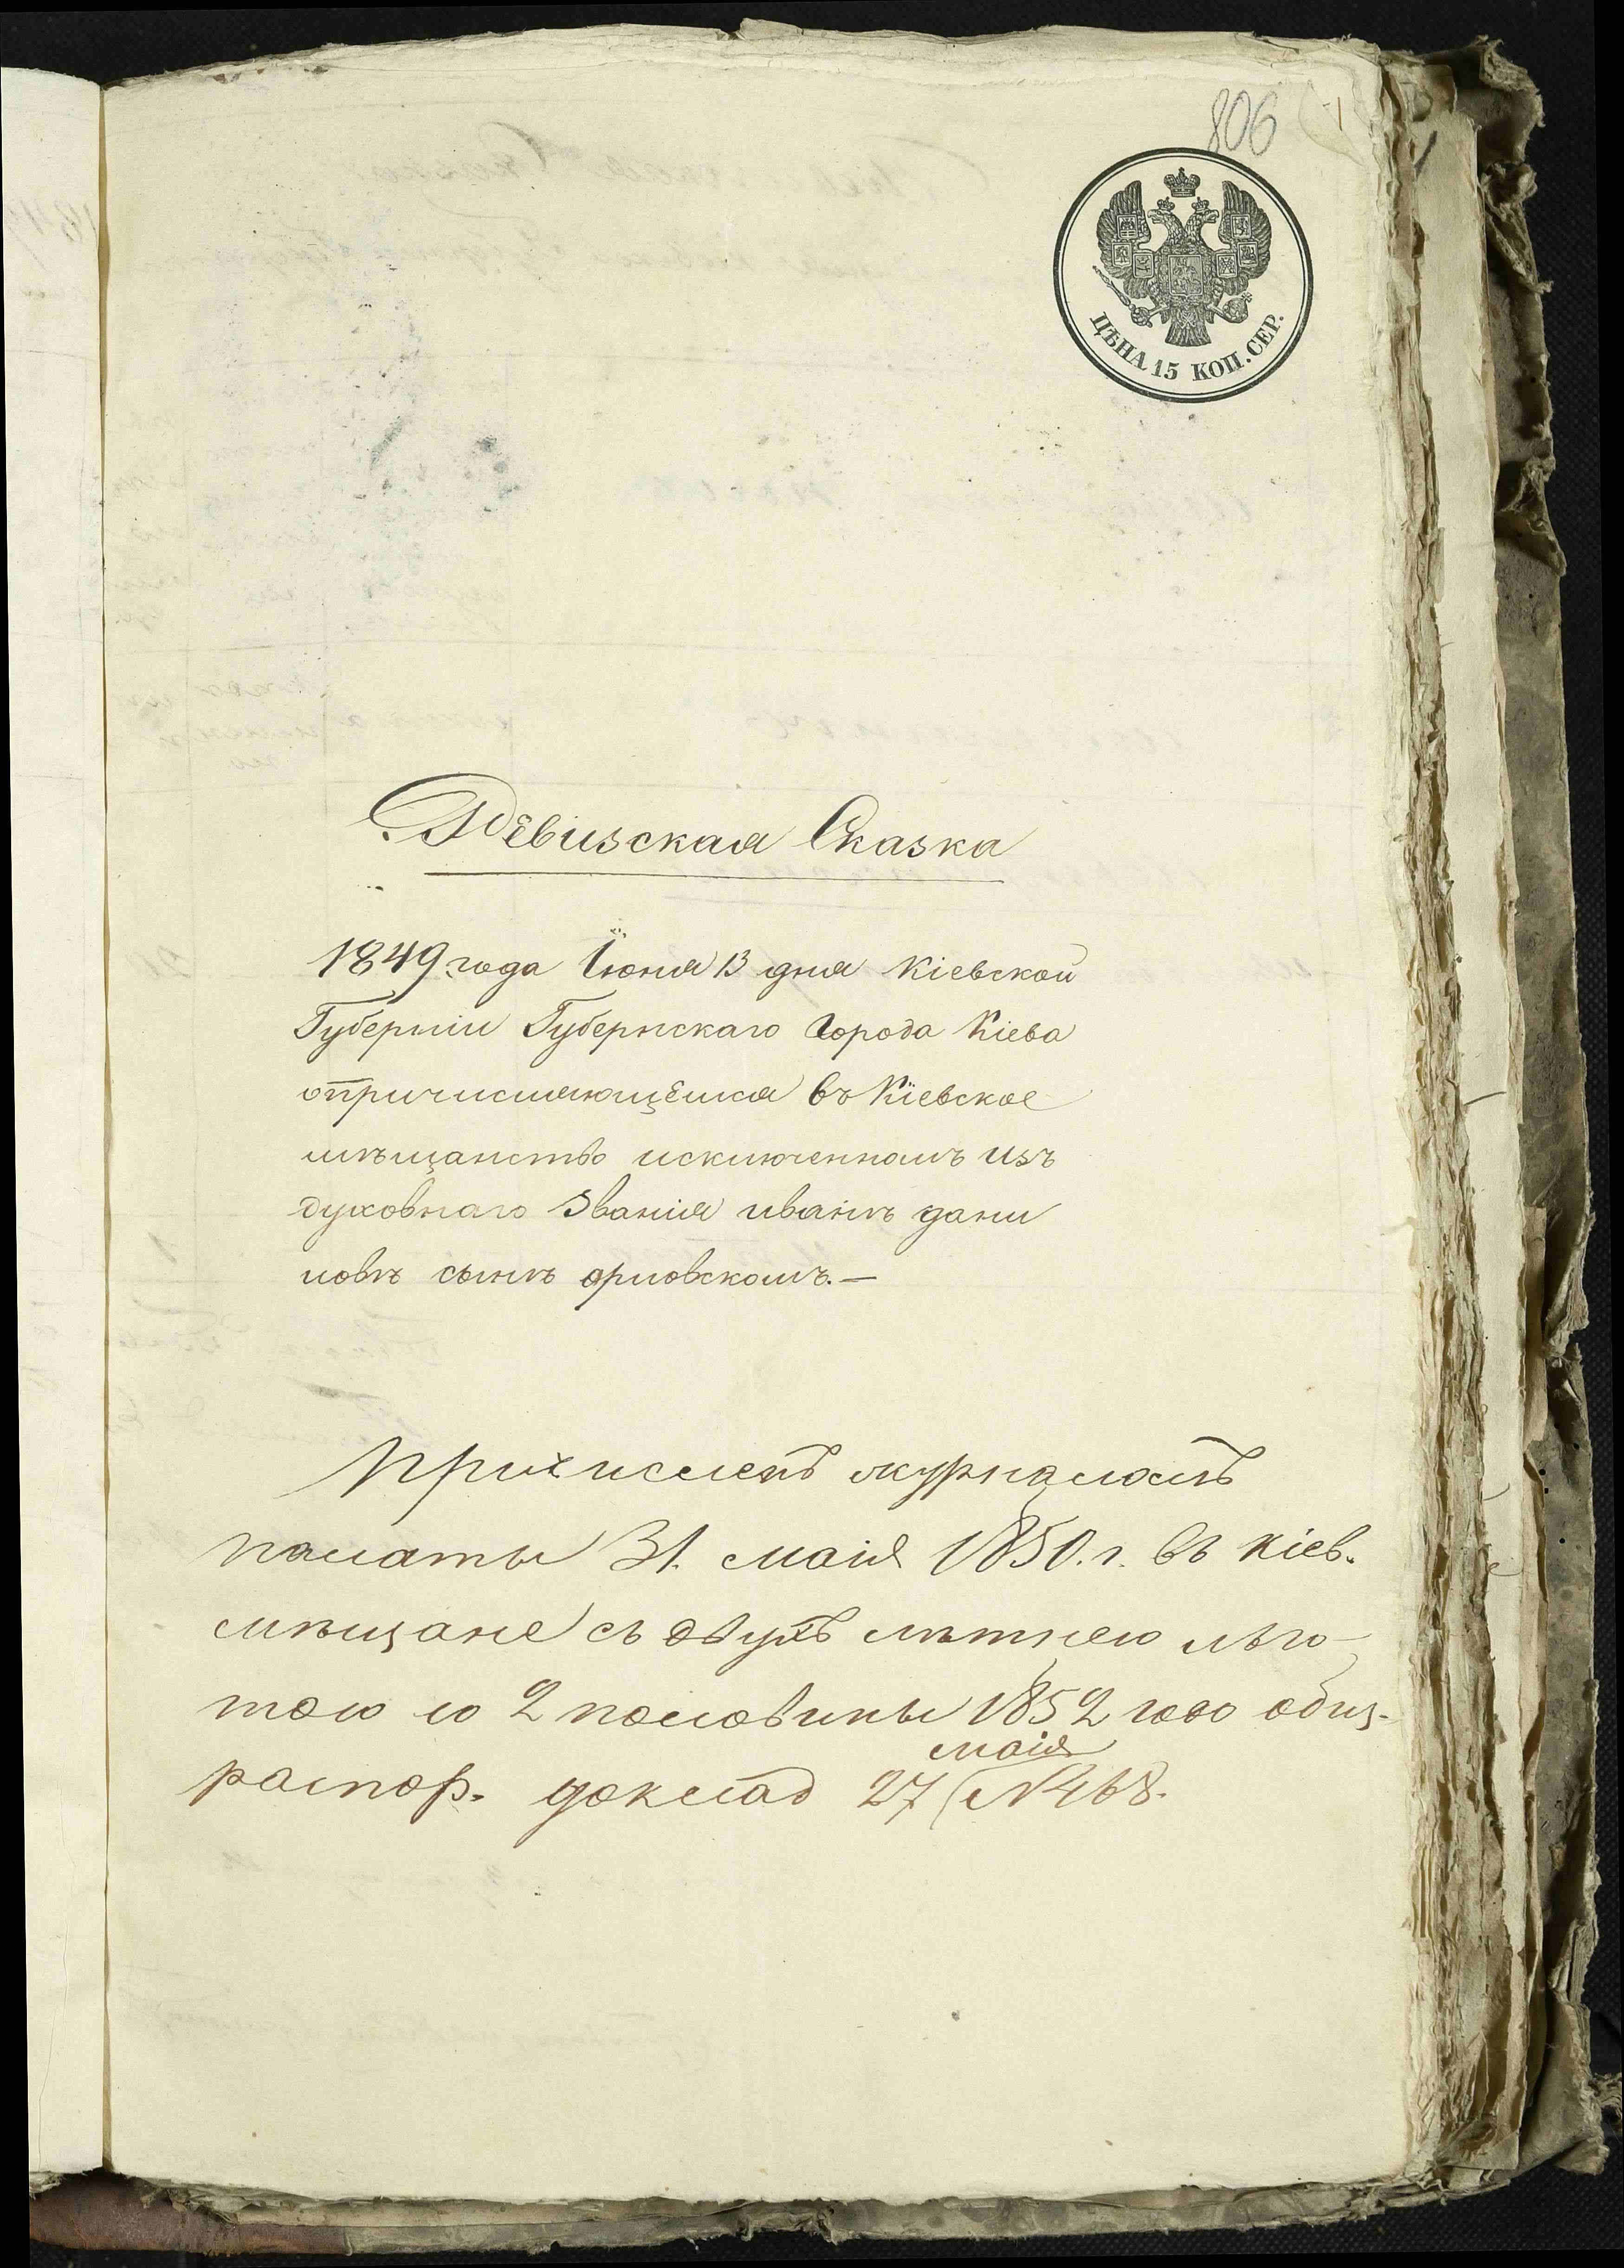 806
ЦѢНА 15 КОП. СЕР.
Ревизская Сказка
1849 года Іюня 13 дня Кіевской
Губерніи Губернскаго Города Кіева
опричисляющемся въ Кіевское
мѣщанство исключенномъ изъ
духовнаго Званія иванѣ дани
ловѣ сынѣ орловскомъ.—
Причисленъ журналомъ
палаты 31. маія 1850. г. въ Кіев.
мѣщане съ двухъ лѣтнею льго-
тою со 2 половины 1852 года
маія
распор. доклад 27 № 468.